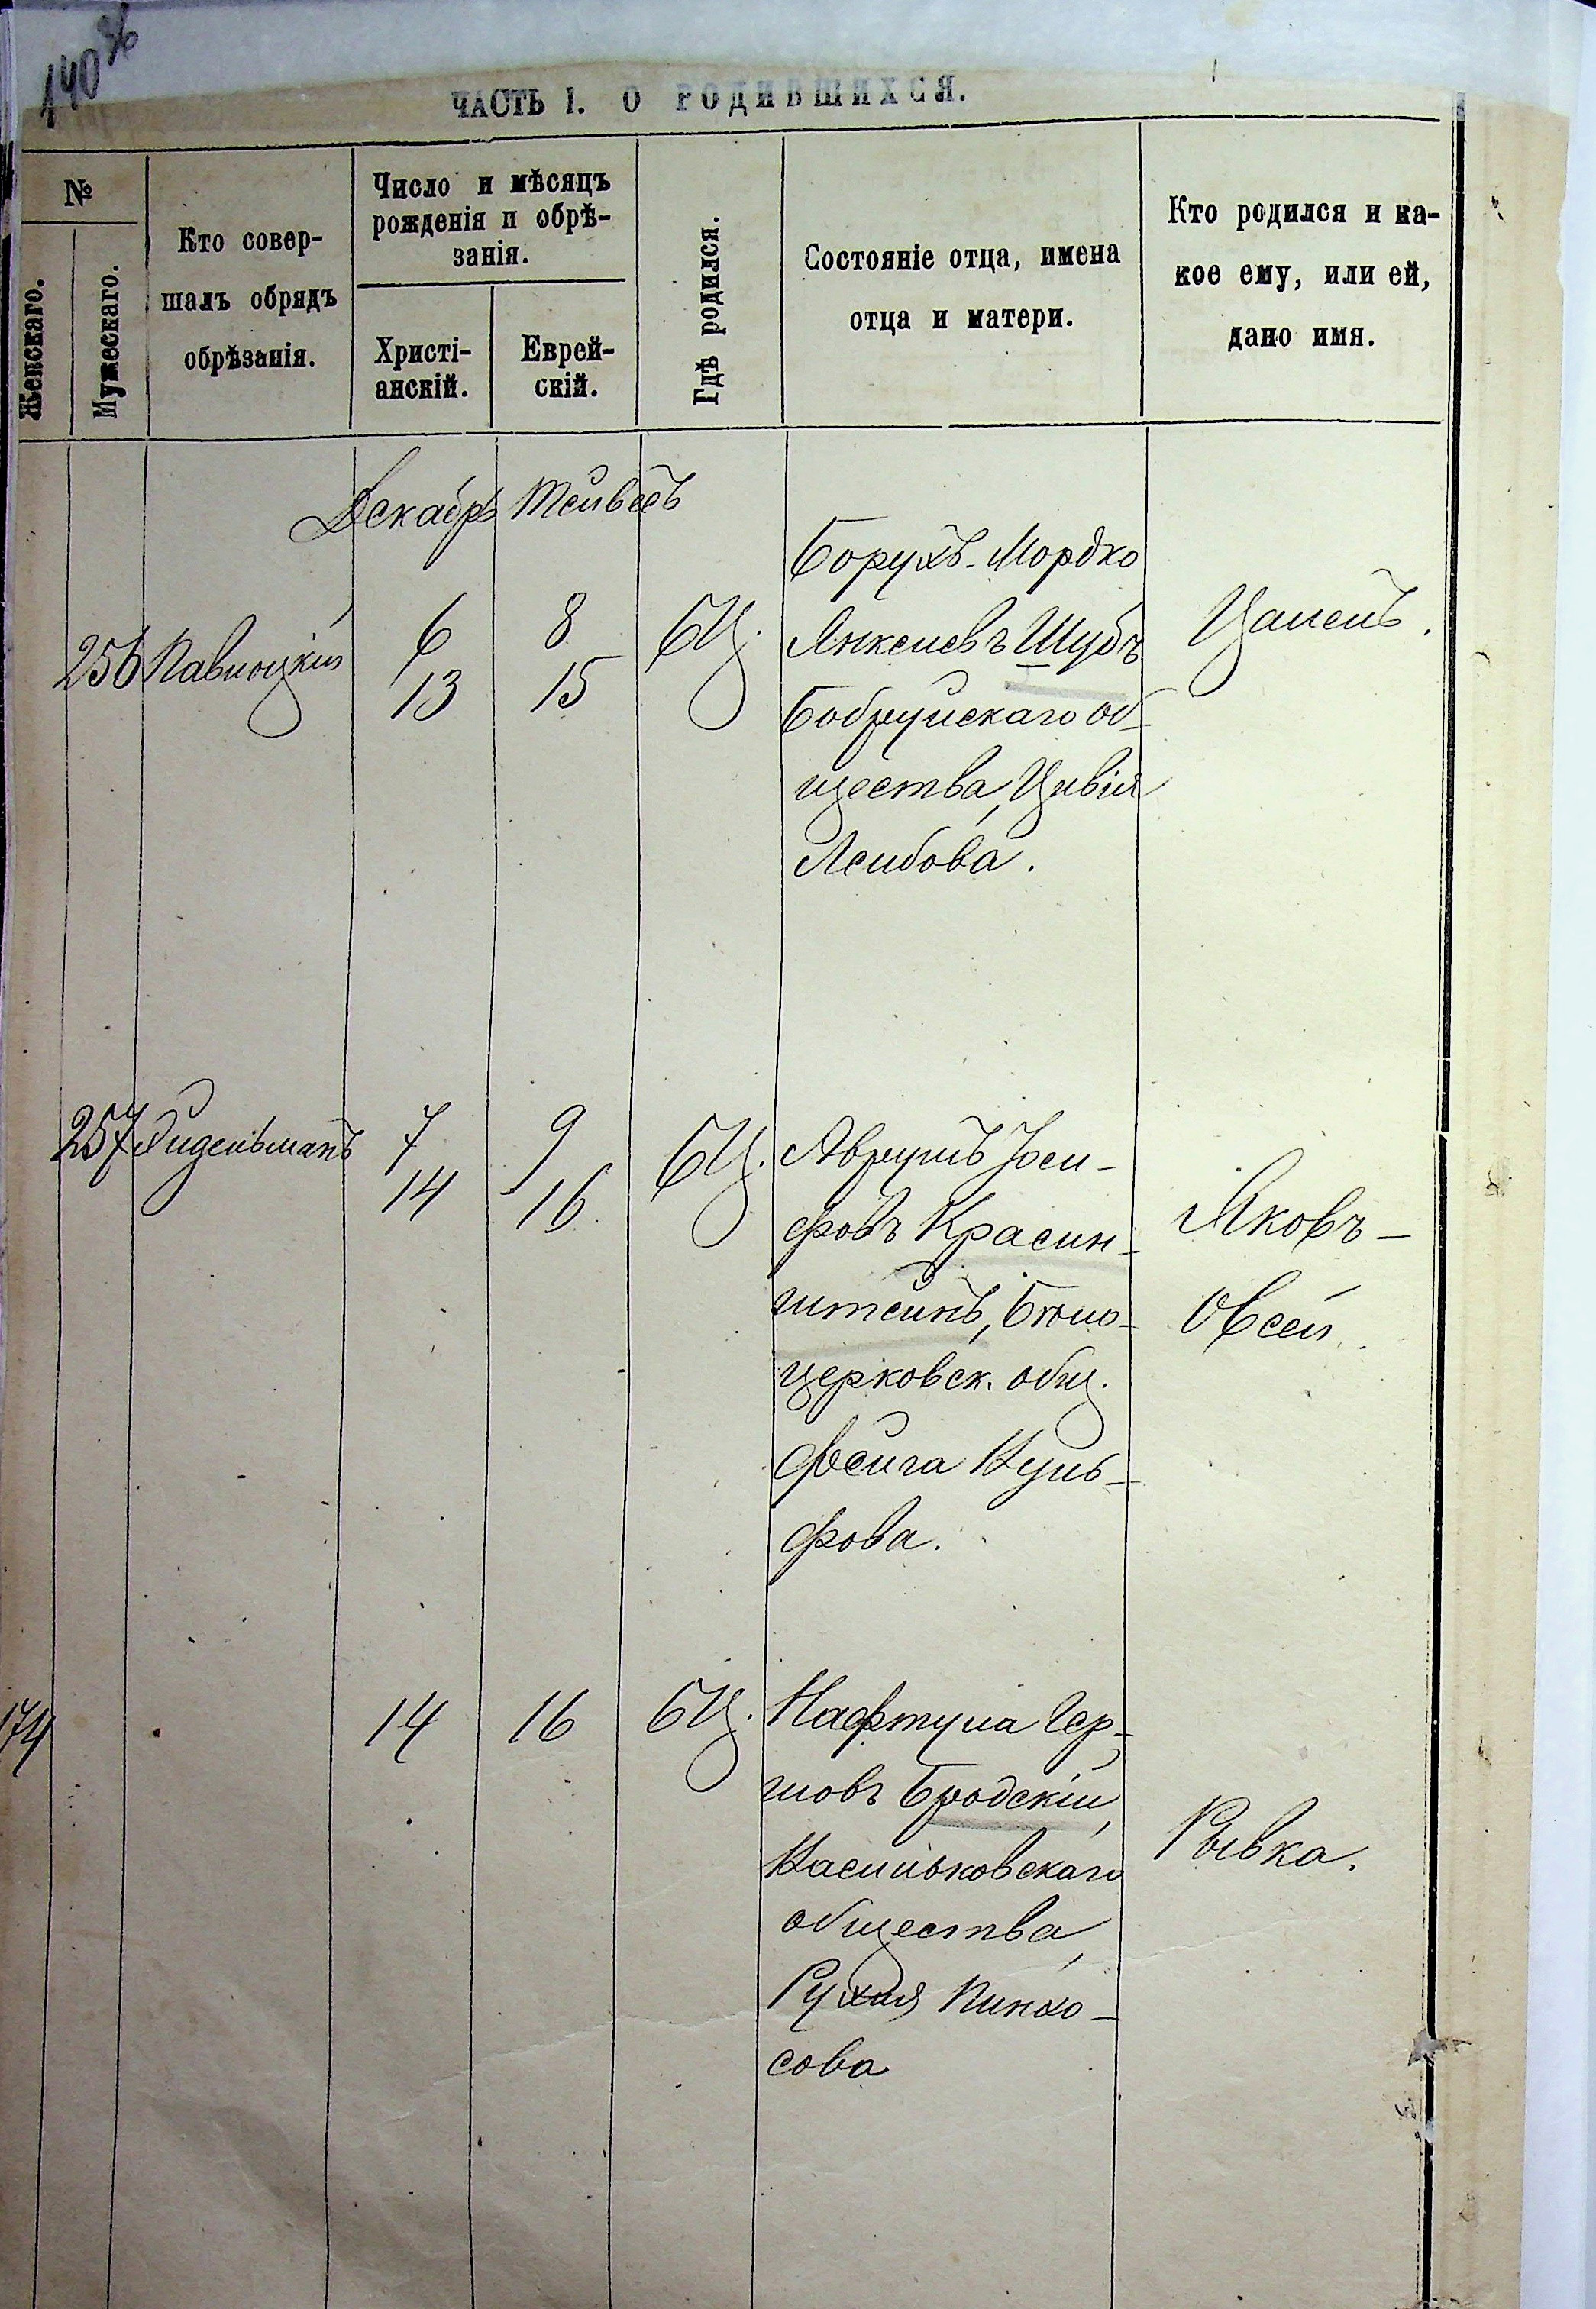 140 36
ЧАСТЬ I. О РОДИВШИХСЯ.
№
Женскаго.
Мужескаго.
Кто совер-
шалъ обрядъ
обрѣзанія.
Число и мѣсяцъ
рожденія и обрѣ-
занія.
Христі-
анскій.
Еврей-
скій.
Гдѣ родился.
Состояніе отца, имена
отца и матери.
Кто родился и ка-
кое ему, или ей,
дано имя.
Декабрь Тейвесъ
256 Павлоцкій 6 8 БЦ.
13 15
Борухъ-Мордко
Янкелевъ Шубъ
Бобруйскаго об-
щества, Цивія
Лейбова.
Цалель.
257 7 9 БЦ.
14 16
Аврумъ Іоси-
фовъ Красин-
штейнъ, Бѣло-
церковск. общ.
Фейга Вуль-
фова.
Яковъ-
Овсей.
174 14 16 БЦ.
Нафтула Гер-
шовъ Бродскій,
Васильковскаго
общества,
Рухля Пинхо-
сова
Рывка.